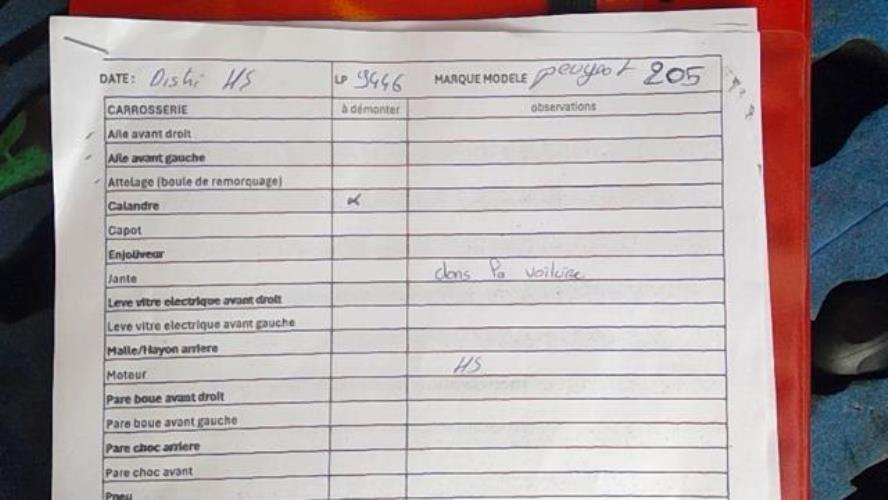 DATE: Distri HS LP 9446 MARQUE MODELE peugeot 205
CARROSSERIE à démonter observations
Aile avant droit
Aile avant gauche
Attelage (boule de remorquage)
Calandre x
Capot
Enjoliveur
Jante dans la voiture
Leve vitre electrique avant droit
Leve vitre electrique avant gauche
Malle/Hayon arriere
Moteur HS
Pare boue avant droit
Pare boue avant gauche
Pare choc arriere
Pare choc avant
Pneu